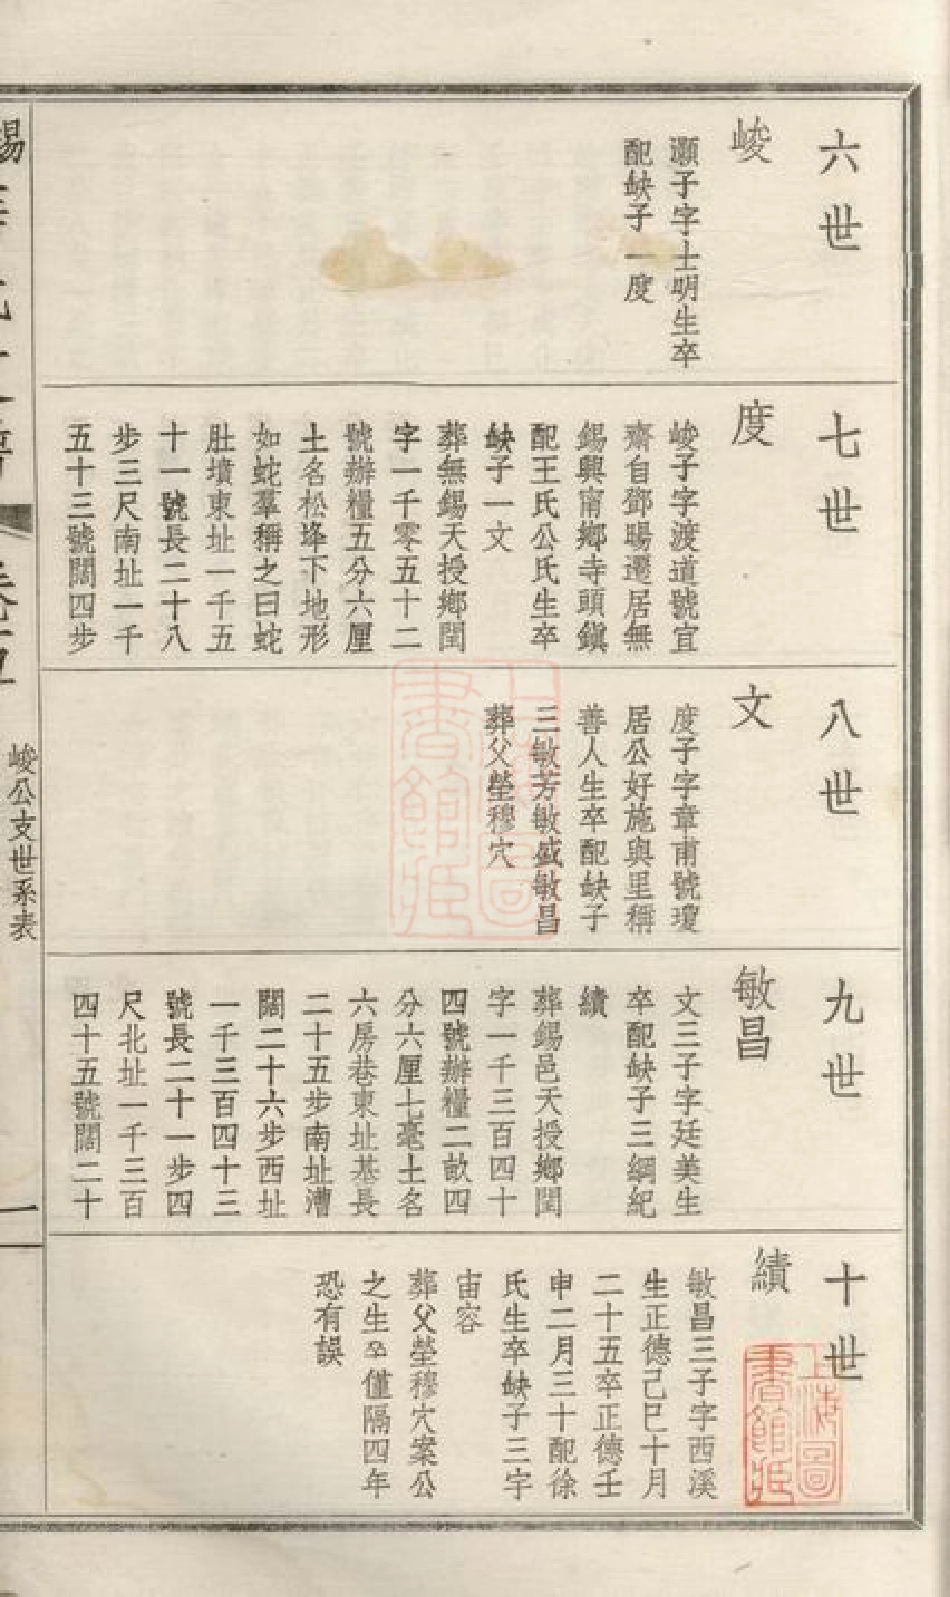 六世
峻
灝子字士明生卒
配缺子一度
七世
度
峻子字渡道號宜
齋自鄧暘遷居無
錫興甯鄉寺頭鎮
配王氏公氏生卒
缺子一文
葬無錫天授鄉閏
字一千零五十二
號辦糧五分六厘
土名松峰下地形
如蛇羣稱之曰蛇
肚墳東址一千五
十一號長二十八
步三尺南址一千
五十三號闊四步
八世
文
度子字章甫號瓊
居公好施與里稱
善人生卒配缺子
三敏芳敏盛敏昌
葬父塋穆穴
九世
敏昌
文三子字廷美生
卒配缺子三綱紀
績
葬錫邑天授鄉閏
字一千三百四十
四號辦糧二畝四
分六厘七毫土名
六房巷東址基長
二十五步南址漕
闊二十六步西址
一千三百四十三
號長二十一步四
尺北址一千三百
四十五號闊二十
十世
績
敏昌三子字西溪
生正德己巳十月
二十五卒正德壬
申二月三十配徐
氏生卒缺子三宇
宙容
葬父塋穆穴案公
之生卒僅隔四年
恐有誤
峻公支世系表
一
上海圖書館藏
上海圖書館藏